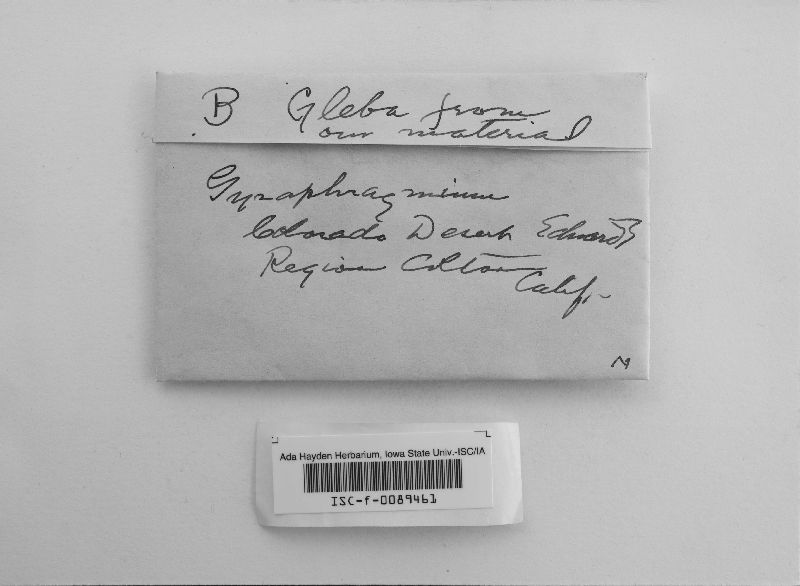 B Gleba from
our material
Gyrophragmium
Colorado Desert Edwards
Region Colton
Calif.
N
Ada Hayden Herbarium, Iowa State Univ.-ISC/IA
ISC-f-0089461